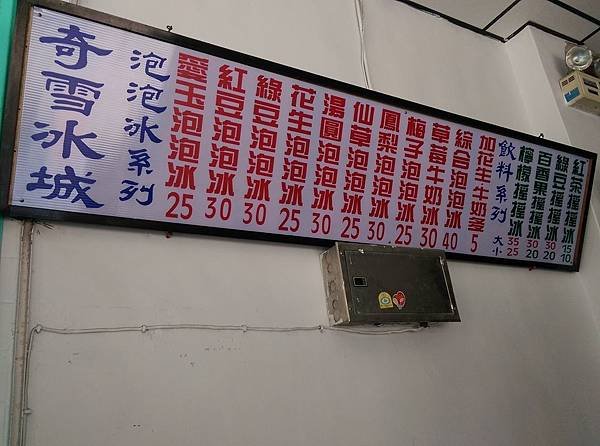 奇雪冰城
泡泡冰系列
愛玉泡泡冰 25
紅豆泡泡冰 30
綠豆泡泡冰 30
花生泡泡冰 25
湯圓泡泡冰 30
仙草泡泡冰 25
鳳梨泡泡冰 30
梅子泡泡冰 25
草莓牛奶冰 30
綜合泡泡冰 40
加花生牛奶麥 5
飲料系列 大 小
檸檬撞撞冰 35 25
百香果撞撞冰 30 20
綠豆撞撞冰 30 20
紅茶撞撞冰 15 10